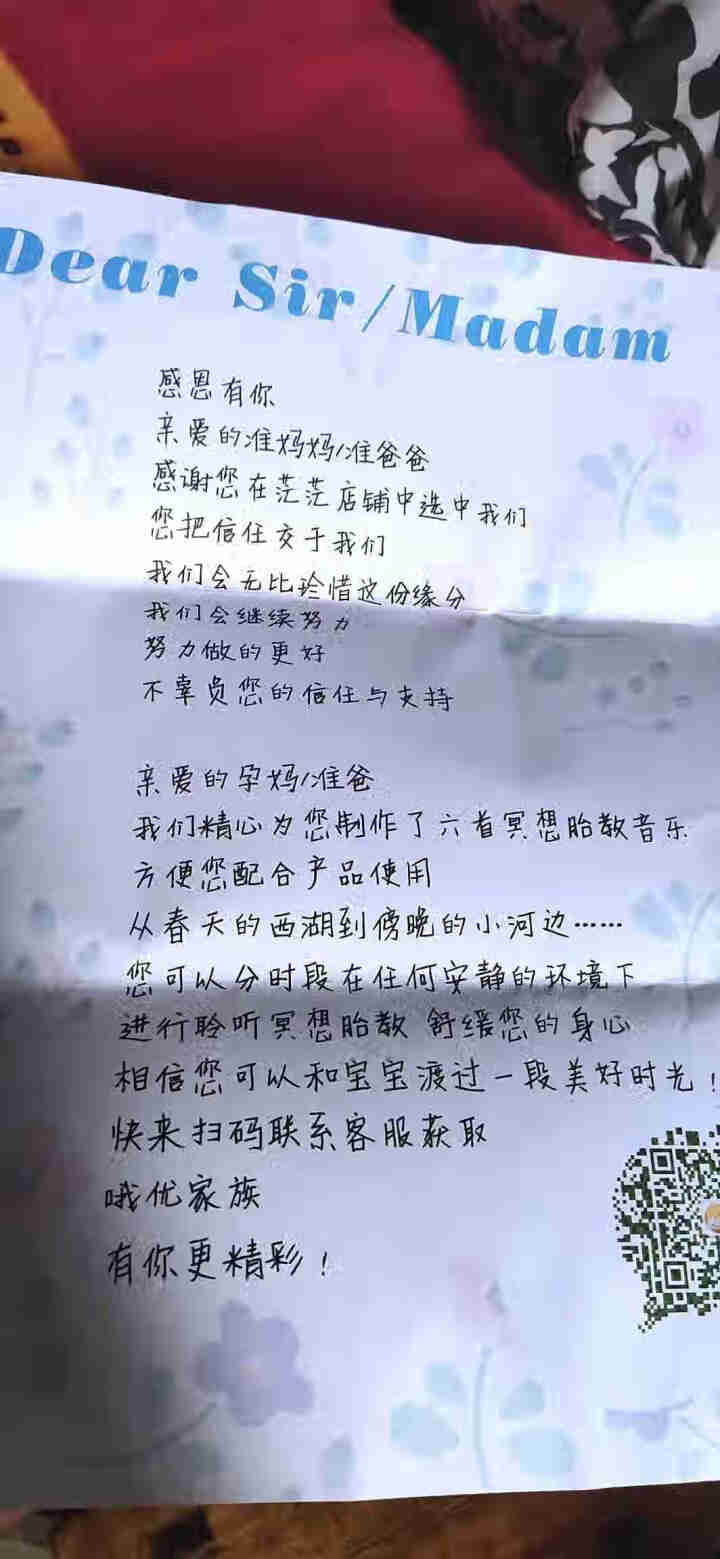 Dear Sir/Madam
感恩有你
亲爱的准妈妈/准爸爸
感谢您在茫茫店铺中选中我们
您把信任交于我们
我们会无比珍惜这份缘分
我们会继续努力
努力做的更好
不辜负您的信任与支持
亲爱的孕妈/准爸
我们精心为您制作了六首冥想胎教音乐
方便您配合产品使用
从春天的西湖到傍晚的小河边……
您可以分时段在任何安静的环境下
进行聆听冥想胎教 舒缓您的身心
相信您可以和宝宝渡过一段美好时光！
快来扫码联系客服获取
哦优家族
有你更精彩！